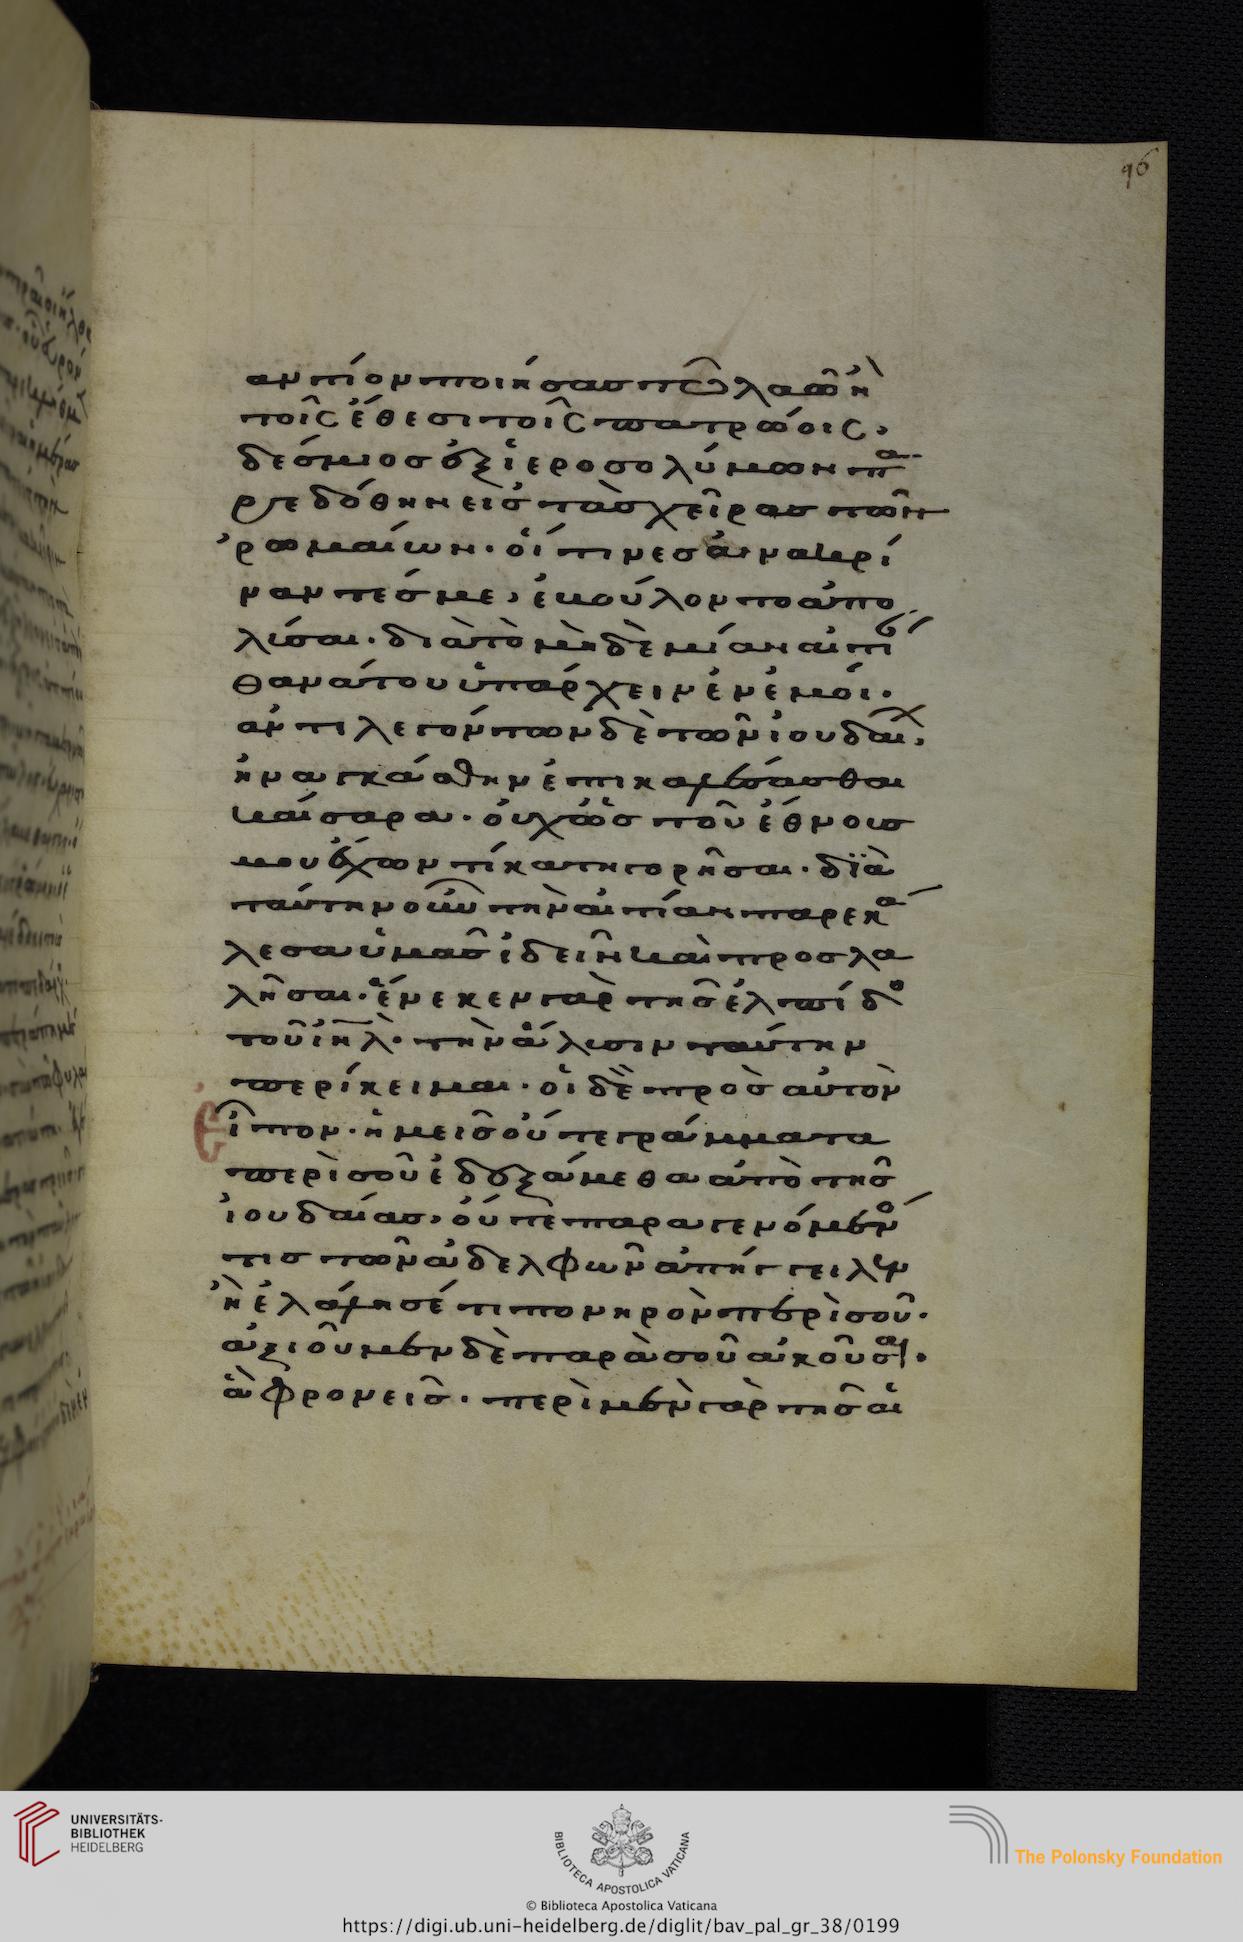 96
αντίον ποιήσας τῶ λαῶ ἢ
τοῖς ἔθεσι τοῖς πατρώοις,
δέσμιος ἐξ ἱεροσολύμων πα
ρεδόθην εἰς τὰς χεῖρας τῶν
ῥωμαίων· οἵτινες ἀνακρί
ναντές με, ἐβούλοντο ἀπο
λῦσαι· διὰ τὸ μηδὲ μίαν αἰτίαν
θανάτου ὑπάρχειν ἐν ἐμοί·
ἀντιλεγόντων δὲ τῶν ἰουδαίων,
ἠναγκάσθην ἐπικαλέσασθαι
καίσαρα· οὐχ ὡς τοῦ ἔθνους
μου ἔχων τί κατηγορῆσαι· διὰ
ταύτην οὖν τὴν αἰτίαν παρεκά
λεσα ὑμᾶς ἰδεῖν καὶ προσλα
λῆσαι· ἕνεκεν γὰρ τῆς ἐλπίδος
τοῦ ἰηλ· τὴν ἅλυσιν ταύτην
περίκειμαι· οἱ δὲ πρὸς αὐτὸν
εἶπον· ἡμεῖς οὔτε γράμματα
περὶ σοῦ ἐδεξάμεθα ἀπὸ τῆς
ἰουδαίας, οὔτε παραγενόμενός
τις τῶν ἀδελφῶν ἀπήγγειλεν
ἢ ἐλάλησέ τι πονηρὸν περὶ σοῦ·
ἀξιοῦμεν δὲ παρὰ σοῦ ἀκοῦσαι·
ἃ φρονεῖς· περὶ μὲν γὰρ τῆς αἱ
UNIVERSITÄTS-
BIBLIOTHEK
HEIDELBERG
BIBLIOTECA APOSTOLICA VATICANA
The Polonsky Foundation
© Biblioteca Apostolica Vaticana
https://digi.ub.uni-heidelberg.de/diglit/bav_pal_gr_38/0199